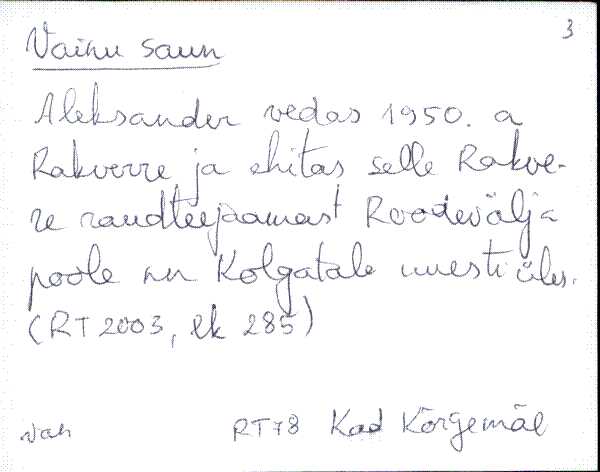 3
Vainu saun
Aleksander vedas 1950. a
Rakverre ja ehitas selle Rakve-
re raudteejaamast Roodevälja
poole nn Kolgatale uuesti üles.
(RT 2003, lk 285)
vah RT78 Kad Kõrgemäe